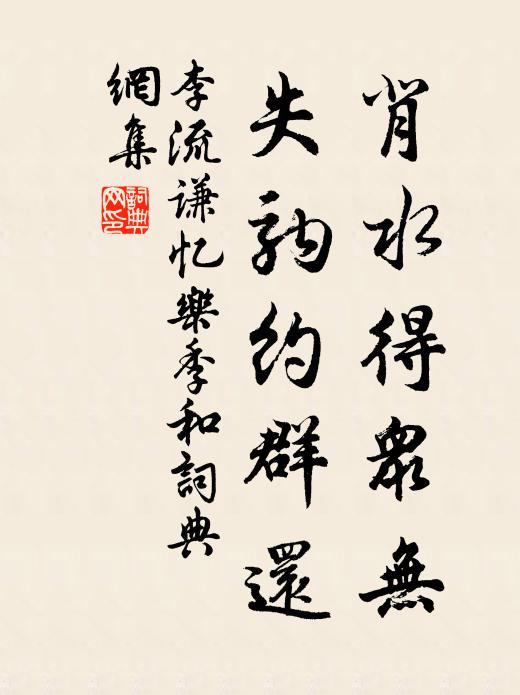 肖水得眾無
失約群還
李流謙忆樂季和詞典
網集
詞典网印